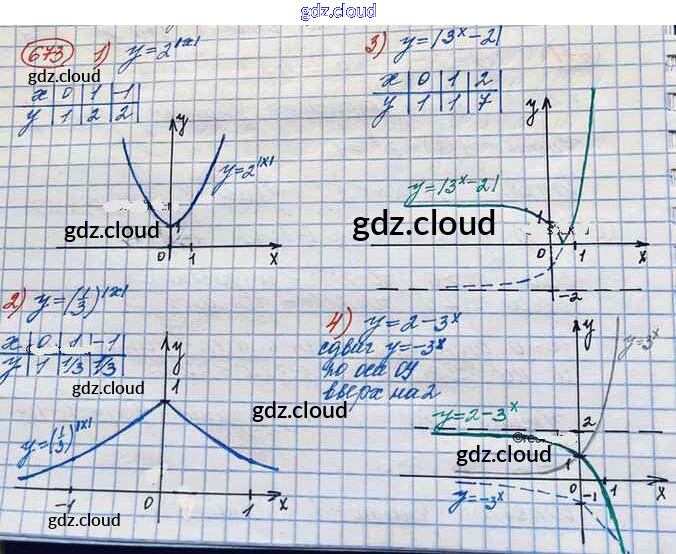 gdz.cloud
673 1) y=2^|x|
x 0 1 -1
y 1 2 2
gdz.cloud
y
y=2^|x|
gdz.cloud
0 1 x
3) y=|3^x-2|
x 0 1 2
y 1 1 7
y
y=|3^x-2|
gdz.cloud
0 1 x
-2
2) y=(1/3)^|x|
x 0 1 -1
y 1 1/3 1/3
gdz.cloud
y
1
y=(1/3)^|x|
gdz.cloud
-1 0 1 x
gdz.cloud
4) y=2-3^x
сдвиг y=-3^x
по оси Oy
вверх на 2
y
y=3^x
y=2-3^x
2
gdz.cloud
1
0 1 x
-1
y=-3^x